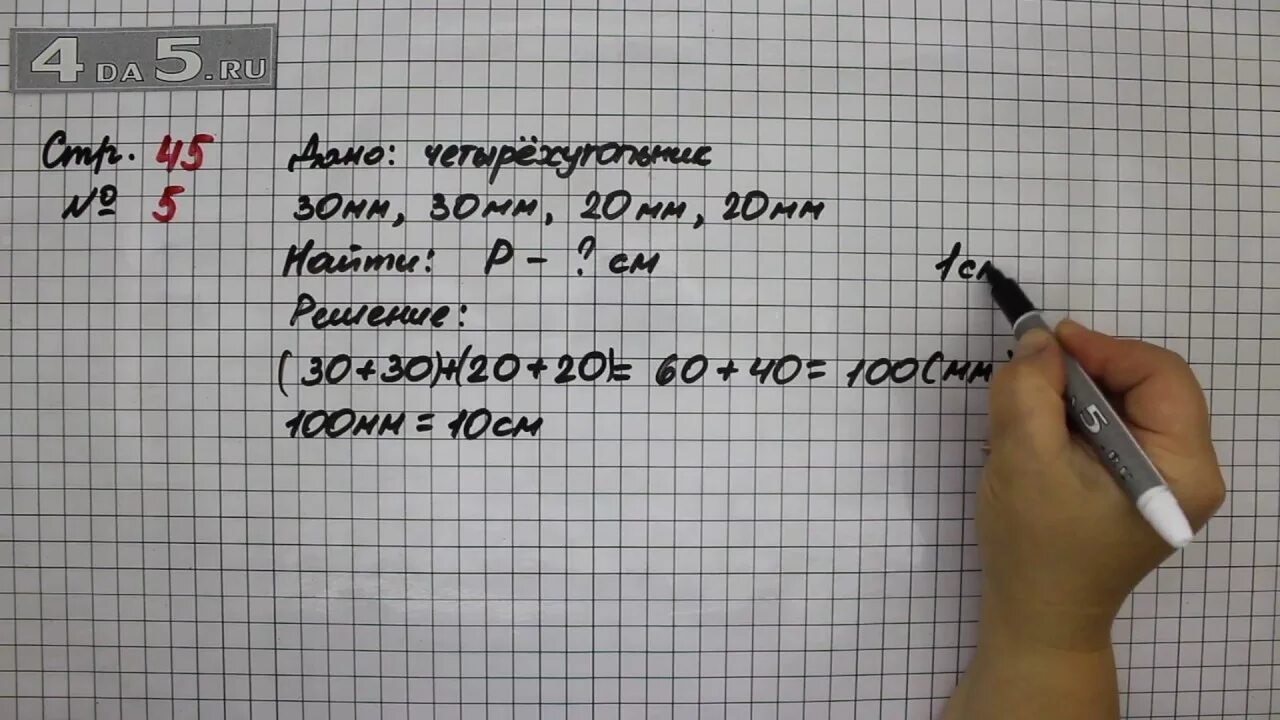 4DA5.RU
Стр. 45
№ 5
Дано: четырёхугольник
30мм, 30мм, 20мм, 20мм
Найти: P - ? см
1см
Решение:
(30+30)+(20+20)= 60+40= 100(мм)
100мм = 10см
5